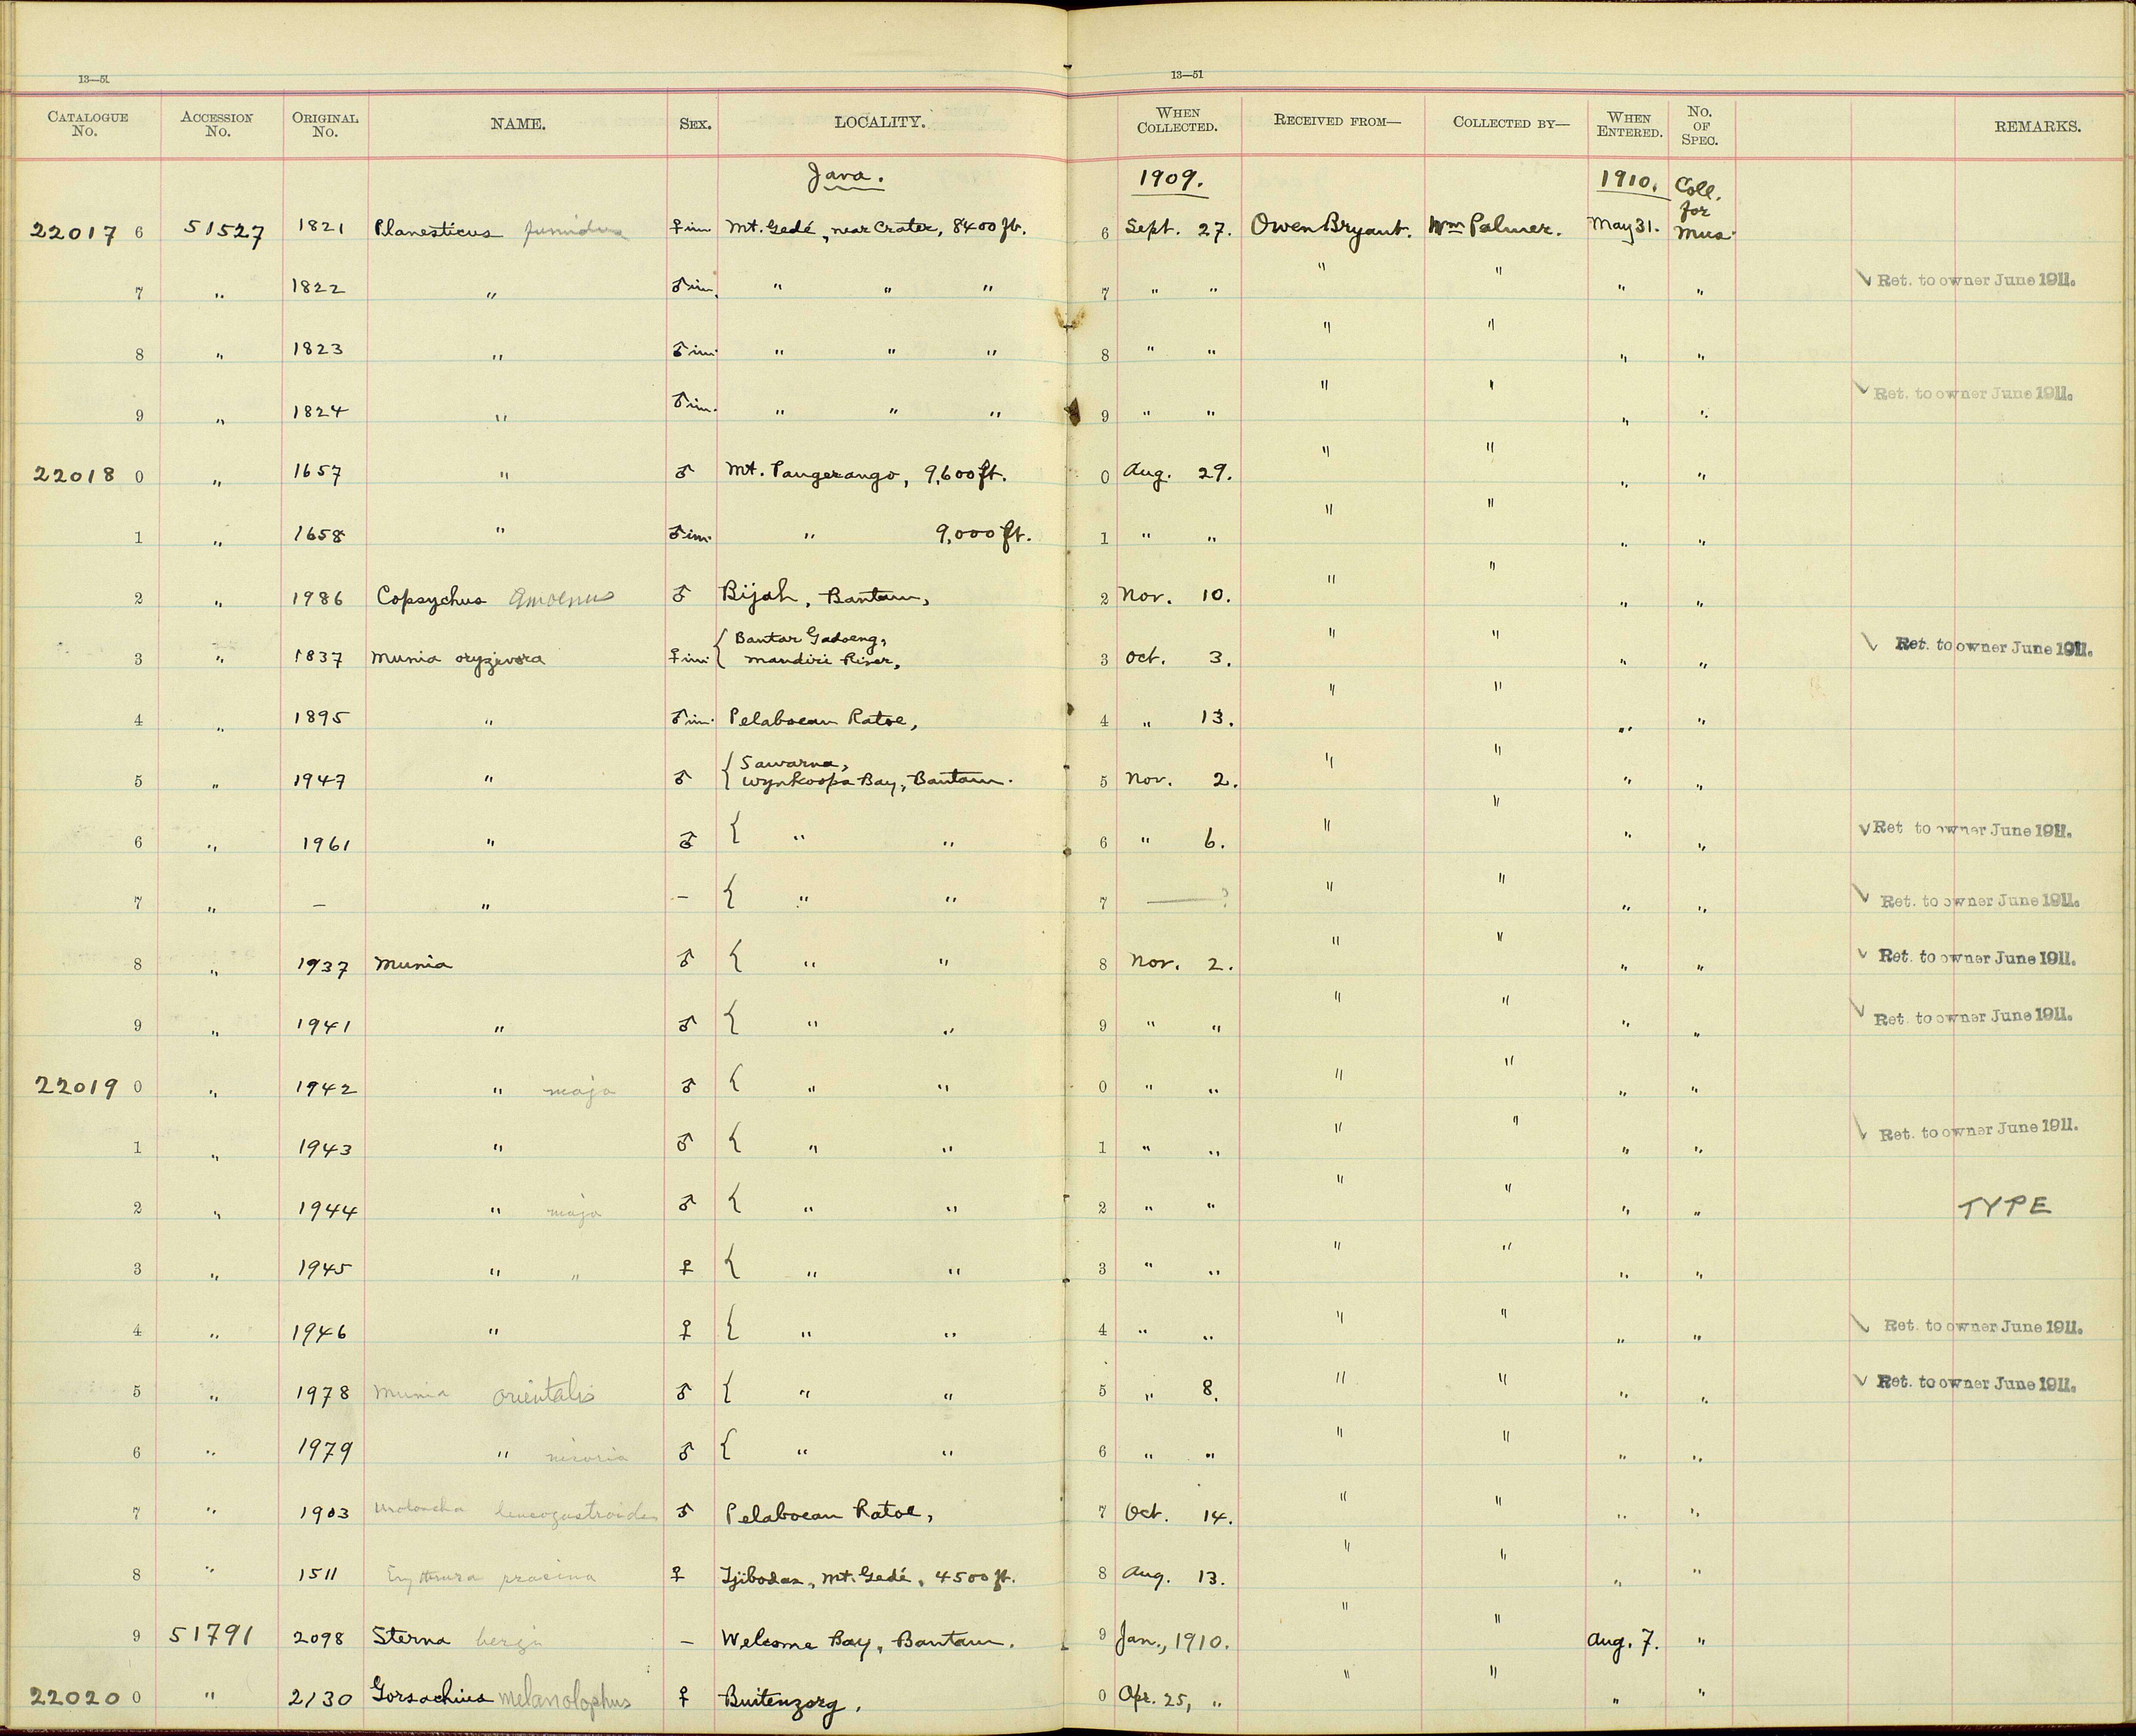 13—51 13—51
CATALOGUE No. ACCESSION No. ORIGINAL No. NAME. SEX. LOCALITY. WHEN COLLECTED. RECEIVED FROM— COLLECTED BY— WHEN ENTERED. No. OF SPEC. REMARKS.
Java. 1909. 1910. Coll. for Mus.
22017 6 51527 1821 Planesticus fumidus ♀ im Mt. Gedé, near Crater, 8400 ft. 6 Sept. 27. Owen Bryant. Wm Palmer. May 31.
7 " 1822 " ♂ im. " " " 7 " " " " " " ✓ Ret. to owner June 1911.
8 " 1823 " ♂ im. " " " 8 " " " " " "
9 " 1824 " ♂ im. " " " 9 " " " " " " ✓ Ret. to owner June 1911.
22018 0 " 1657 " ♂ Mt. Pangerango, 9,600 ft. 0 Aug. 29. " " " "
1 " 1658 " ♂ im. " 9,000 ft. 1 " " " " " "
2 " 1986 Copsychus amoenus ♂ Bijah, Bantam, 2 Nov. 10. " " " "
3 " 1837 Munia oryzivora ♀ im { Bantar Gadoeng, Mandiri River, 3 Oct. 3. " " " " ✓ Ret. to owner June 1911.
4 " 1895 " ♂ im. Pelaboean Ratoe, 4 " 13. " " " "
5 " 1947 " ♂ { Sawarna, Wynkoops Bay, Bantam. 5 Nov. 2. " " " "
6 " 1961 " ♂ { " " 6 " 6. " " " " ✓ Ret to owner June 1911.
7 " — " — { " " 7 — ? " " " " ✓ Ret. to owner June 1911.
8 " 1937 Munia ♂ { " " 8 Nov. 2. " " " " ✓ Ret. to owner June 1911.
9 " 1941 " ♂ { " " 9 " " " " " " ✓ Ret. to owner June 1911.
22019 0 " 1942 " maja ♂ { " " 0 " " " " " "
1 " 1943 " ♂ { " " 1 " " " " " " ✓ Ret. to owner June 1911.
2 " 1944 " maja ♂ { " " 2 " " " " " " TYPE
3 " 1945 " " ♀ { " " 3 " " " " " "
4 " 1946 " ♀ { " " 4 " " " " " " ✓ Ret. to owner June 1911.
5 " 1978 Munia orientalis ♂ { " " 5 " 8. " " " " ✓ Ret. to owner June 1911.
6 " 1979 " nisoria ♂ { " " 6 " " " " " "
7 " 1903 leucogastroides ♂ Pelaboean Ratoe, 7 Oct. 14. " " " "
8 " 1511 Erythrura prasina ♀ Tjibodas, Mt. Gedé, 4500 ft. 8 Aug. 13. " " " "
9 51791 2098 Sterna bergii — Welcome Bay, Bantam. 9 Jan., 1910. " " Aug. 7. "
22020 0 " 2130 Gorsachius melanolophus ♀ Buitenzorg, 0 Apr. 25, " " " " "